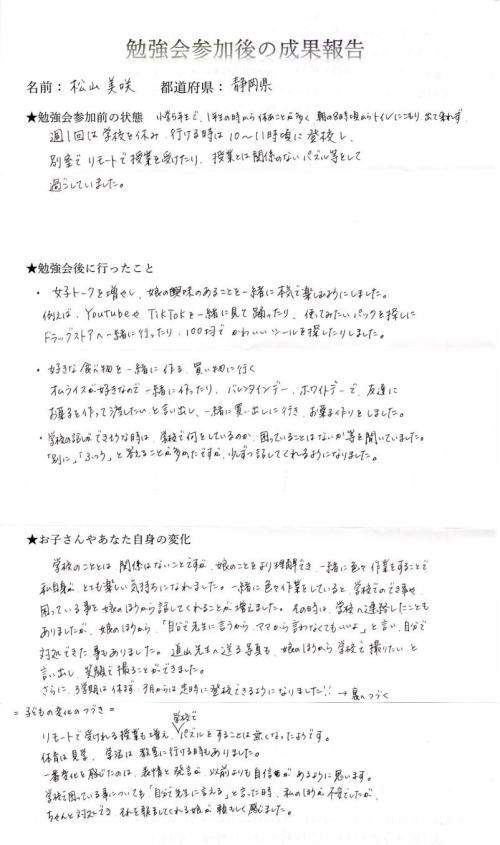 勉強会参加後の成果報告
名前： 松山 美咲 都道府県： 静岡県
★勉強会参加前の状態 小学5年生で、1年生の時から休みことが多く 朝の8時頃からトイレにこもり、出て来れず、
週1回は学校を休み、行ける時は10〜11時頃に登校し、
別室でリモートで授業を受けたり、授業とは関係のないパズル等をして
過ごしていました。
★勉強会後に行ったこと
・ 女子トークを増やし、娘の興味のあることを一緒に本気で楽しむようにしました。
例えば、YoutubeやTikTokを一緒に見て踊ったり、使ってみたいパックを探しに
ドラッグストアへ一緒に行ったり、100均でかわいいシールを探したりしました。
・好きな食べ物を一緒に作る、買い物に行く
オムライスが好きなので一緒に作ったり、バレンタインデー、ホワイトデーで、友達に
お菓子を作って渡したいと言い出し、一緒に買い出しに行き、お菓子作りをしました。
・学校の話ができそうな時は、学校で何をしているのか、困っていることはないか等を聞いていました。
「別に」「ふつう」と答えることが多かたですが、少しずつ話してくれるようになりました。
★お子さんやあなた自身の変化
学校のこととは関係はないことですが、娘のことをより理解でき、一緒に色々作業をすることで
私自身が、とても楽しい気持ちになれました。一緒に色々作業をしていると、学校での出来事や、
困っている事を娘のほうから話してくれることが増えました。その時は、学校へ連絡したことも
ありましたが、娘のほうから、「自分で先生に言うから、ママから言わなくてもいいよ」と言い、自分で
対処できた事もありました。道山先生へ送る写真も、娘のほうから学校で撮りたいと
言い出し、笑顔で撮ることができました。
さらに、3学期は休まず、3月からは定時に登校できるようになりました!! → 裏へつづく
= 子どもの変化のつづき =
リモートで受けれる授業も増え、学校でパズルをすることは無くなったようです。
体育は見学、学活は教室に行ける時もありました。
一番変化を感じたのは、表情と発言が、以前よりも自信があるように思います。
学校で困っている事についても「自分で先生に言える」と言った時、私のほうが不安でしたが、
ちゃんと対処でき、それを報告してくれる娘が頼もしく感じました。